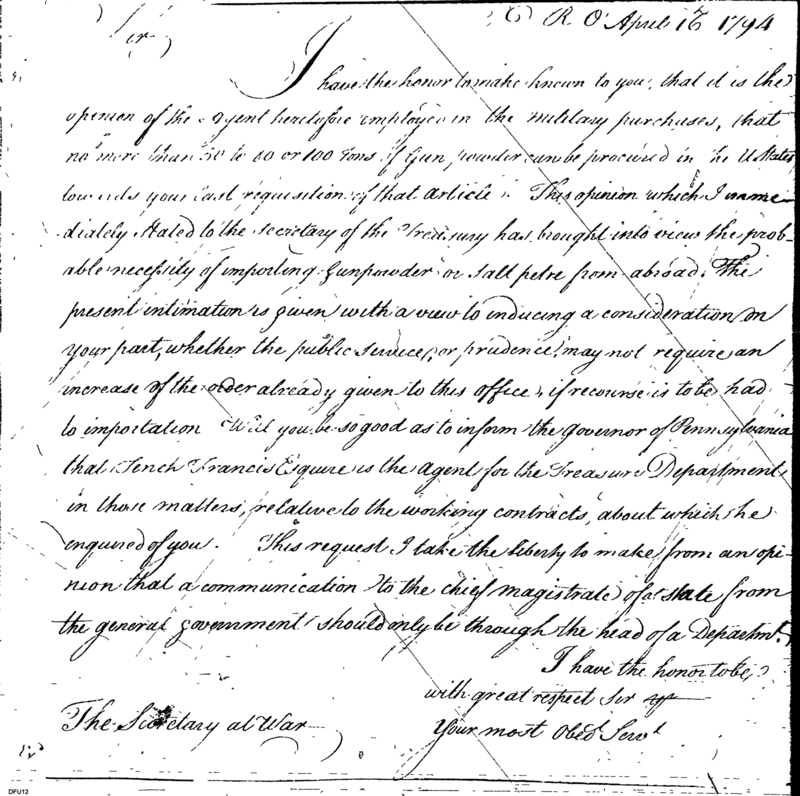 R. O. April 16th 1794
Sir
I have the honor to make known to you, that it is the
opinion of the Agent heretofore employed in the military purchases, that
no more than to 60 or 100 Tons of Gun powder can be procured in the U States
towards your last requisition of that article. This opinion which I imme-
diately stated to the Secretary of the Treasury has brought into view the prob-
able necessity of importing Gunpowder or Salt petre from abroad. The
present intimation is given with a view to inducing a consideration on
your part, whether the public service, or prudence, may not require an
increase of the order already given to this office, if recourse is to be had
to importation Will you be so good as to inform the Governor of Pennsylvania
that Tench Francis Esquire is the Agent for the Treasury Department
in those matters, relative to the working contracts, about which he
enquired of you. This request I take the liberty to make from an opi-
nion that a communication to the chief magistrate of a state from
the general government should only be through the head of a Departmt.
I have the honor to be,
with great respect Sir
Your most Obedt Servt
The Secretary at War
DFU12